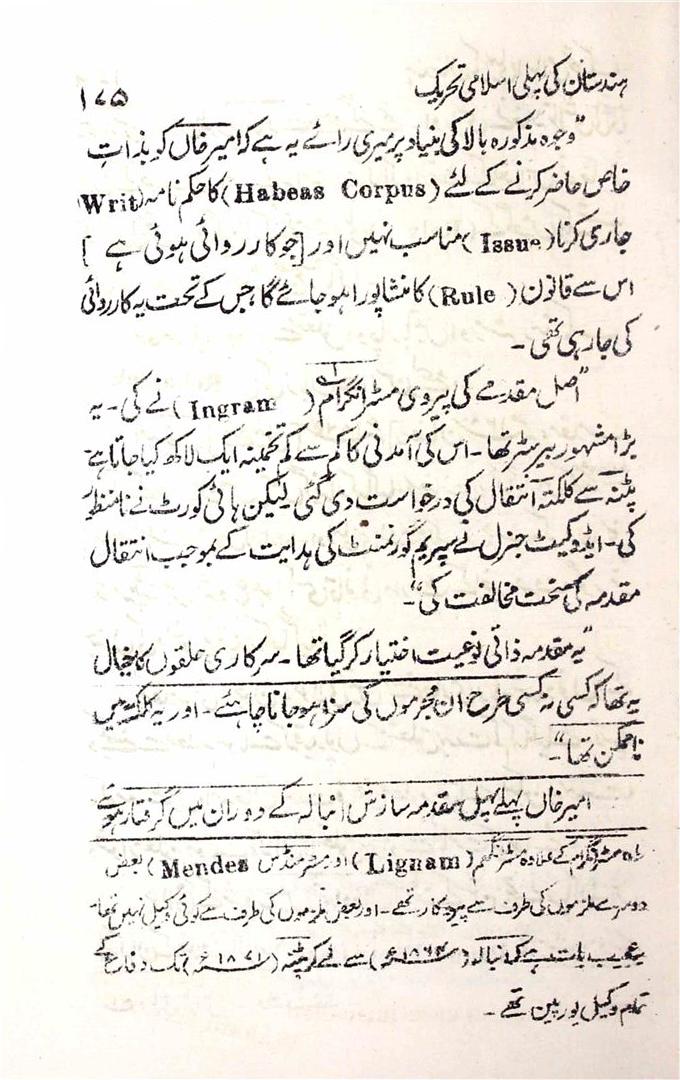 ہندستان کی پہلی اسلامی تحریک ۱۷۵
"وجوہ مذکورہ بالا کی بنیاد پر میری رائے یہ ہے کہ امیر خاں کو بذاتِ
خاص حاضر کرنے کے لئے (Habeas Corpus) کا حکم نامہ (Writ)
جاری کرنا (Issue) مناسب نہیں اور [جو کارروائی ہوئی ہے]
اس سے قانون (Rule) کا منشا پورا ہو جائے گا، جس کے تحت یہ کارروائی
کی جا رہی تھی۔
"اصل مقدمے کی پیروی مسٹر انگرام۱؎ (Ingram) نے کی۔ یہ
بڑا مشہور بیرسٹر تھا۔ اس کی آمدنی کا کم سے کم تخمینہ ایک لاکھ کیا جاتا ہے
پٹنہ سے کلکتہ انتقال کی درخواست دی گئی لیکن ہائی کورٹ نے نامنظور
کی۔ ایڈوکیٹ جنرل نے سپریم گورنمنٹ کی ہدایت کے بموجب انتقال
مقدمہ کی سخت مخالفت کی"۔
"یہ مقدمہ ذاتی نوعیت اختیار کر گیا تھا۔ سرکاری حلقوں کا خیال
یہ تھا کہ کسی نہ کسی طرح ان مجرموں کی سزا ہو جانا چاہئے۔ اور یہ کلکتہ میں
ناممکن تھا"۔
امیر خاں پہلے پہل مقدمہ سازش انبالہ کے دوران میں گرفتار ہوئے
۱؎ مسٹر انگرام کے علاوہ مسٹر لنگھم (Lignam) اور مسٹر منڈس (Mendes) بعض
دوسرے ملزموں کی طرف سے پیروکار تھے۔ اور بعض ملزموں کی طرف سے کوئی وکیل نہیں تھا۔
یہ عجیب بات ہے کہ انبالہ (۱۸۶۴ء) سے لے کر پٹنہ (۱۸۷۱ء) تک دفاع کے
تمام وکیل یورپین تھے۔